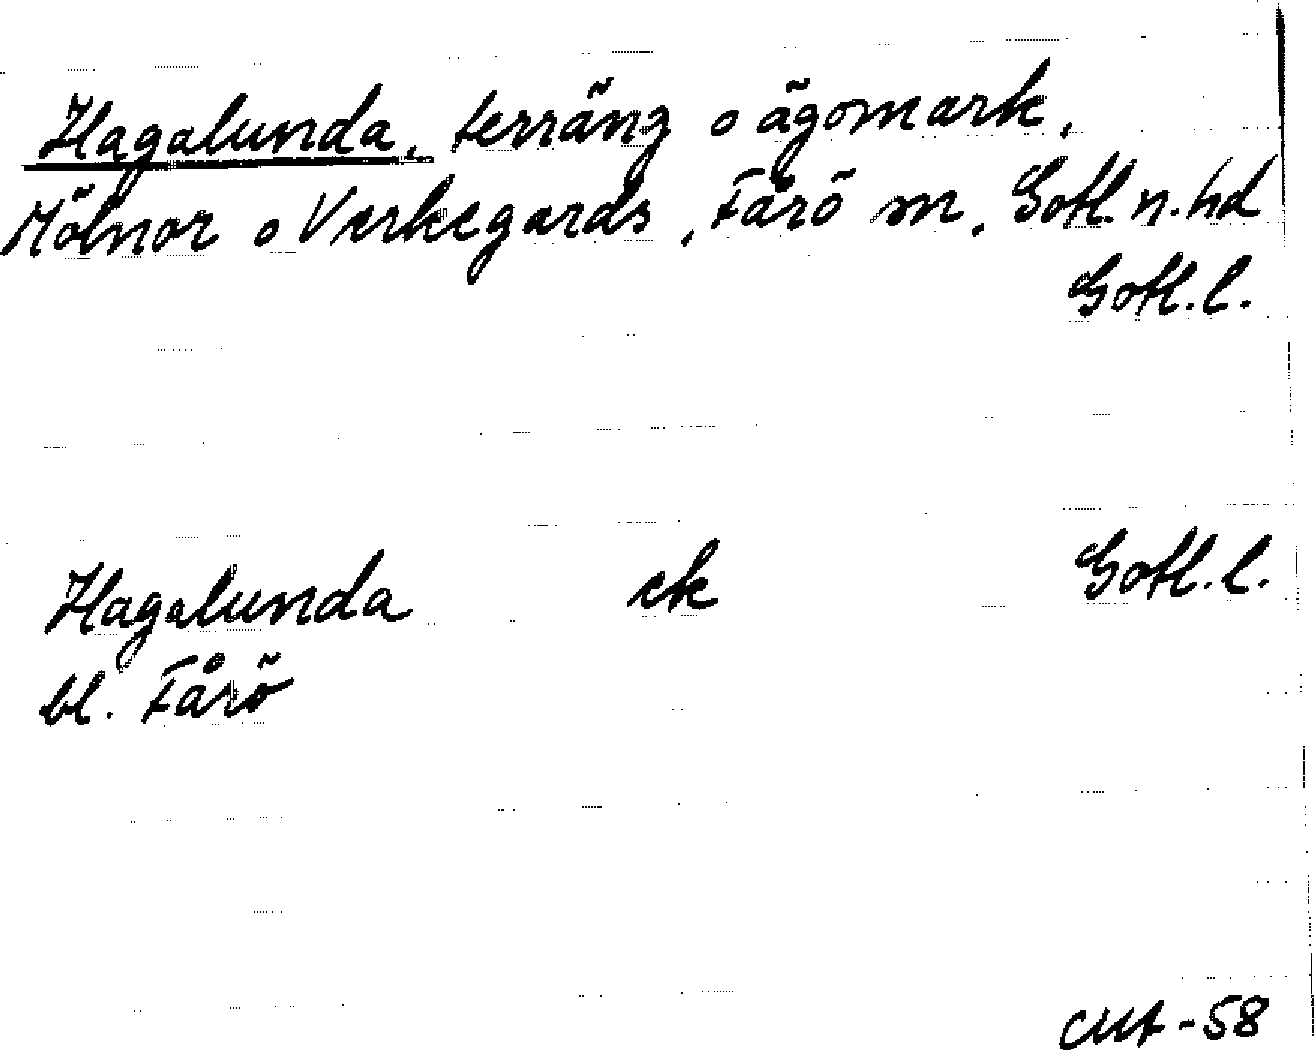 Hagalunda, terräng o ägomark,
Mölnor o Verkegards, Fårö m, Gotl. n. hd
Gotl. l.
Hagalunda ek Gotl. l.
bl. Fårö
CMA-58